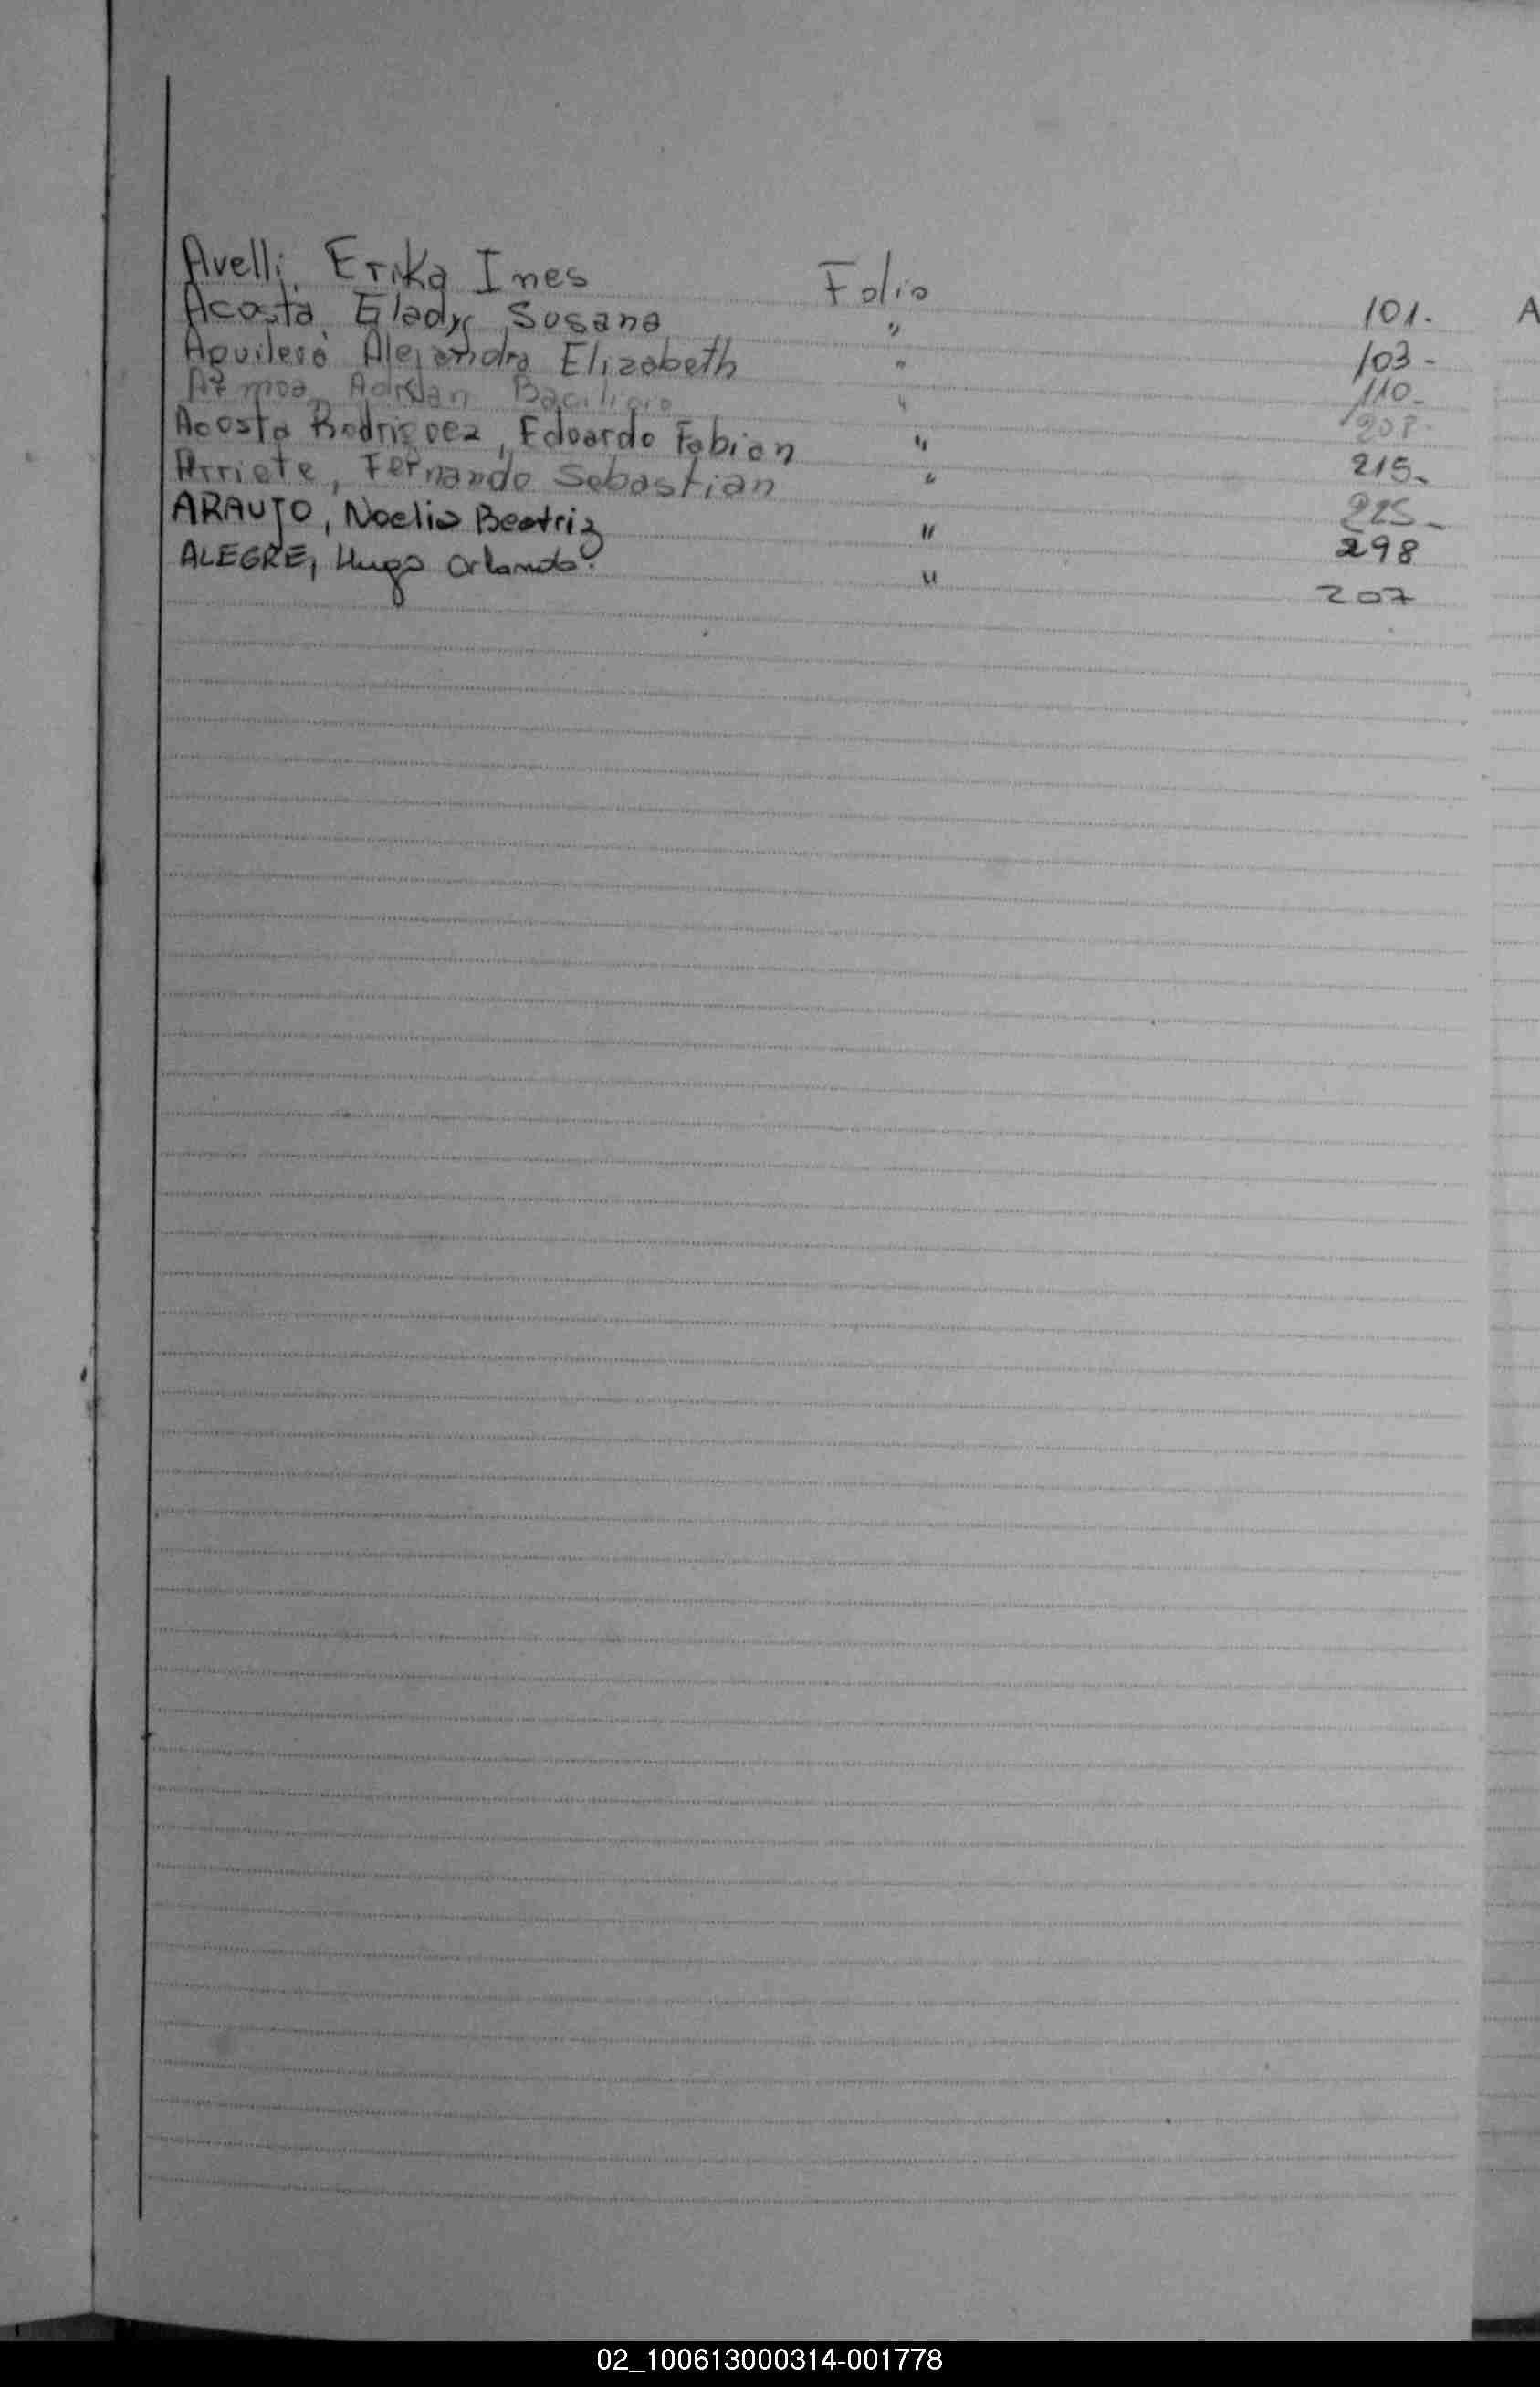 Avelli, Erika Ines Folio 101.
Acosta, Gladys Susana " 103-
Aguilera Alejandra Elizabeth " 110-
Adrian " 208-
Acosta Rodriguez, Eduardo Fabian " 215-
Arriete, Fernando Sebastian " 225-
ARAUJO, Noelia Beatriz " 298
ALEGRE, Hugo Orlando. " 207
A
02_100613000314-001778